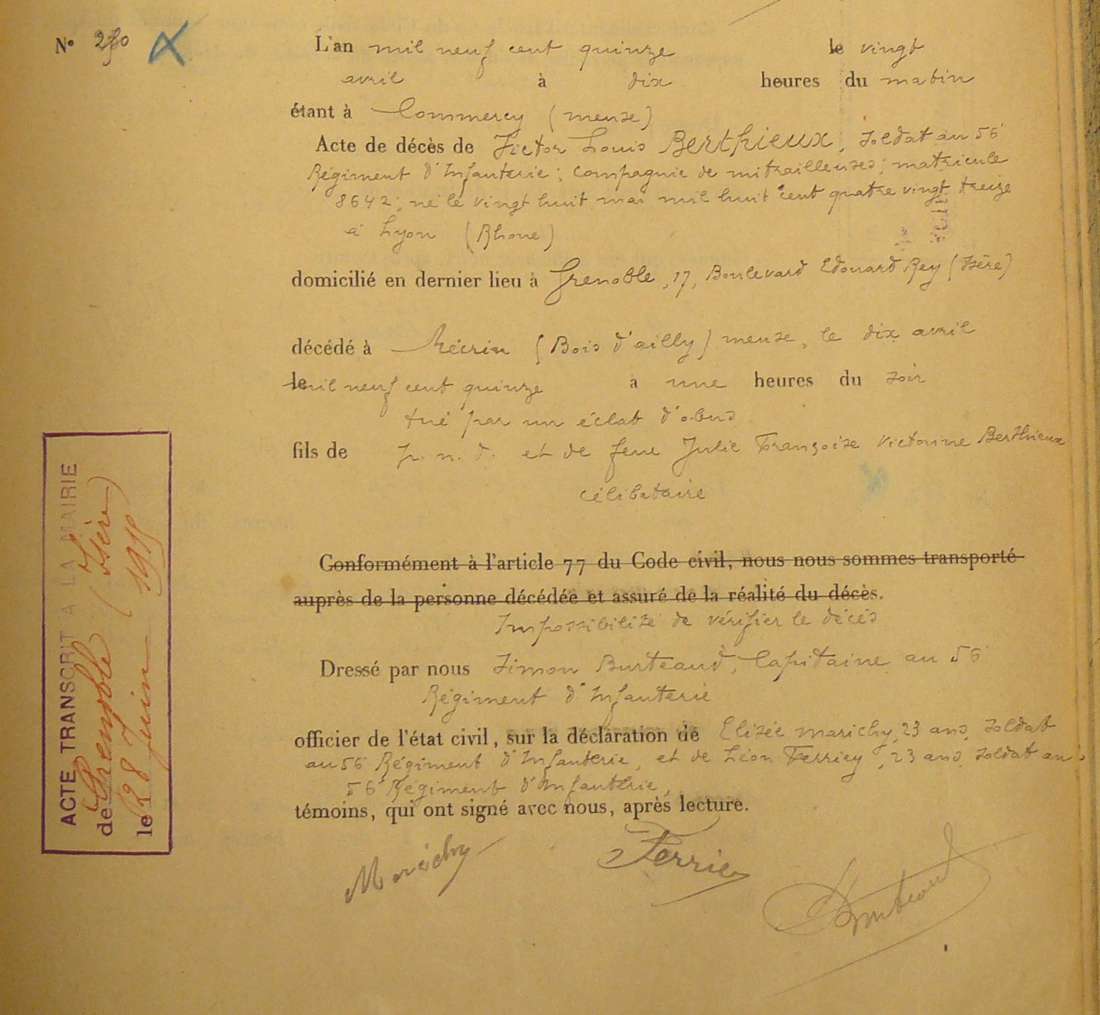 N° 280
L'an mil neuf cent quinze le vingt
avril à dix heures du matin
étant à Commercy (meuse)
Acte de décès de Victor Louis Berthieux, soldat au 56
Régiment d'Infanterie; compagnie de mitrailleuses; matricule
8642; né le vingt huit mai mil huit cent quatre vingt treize
à Lyon (Rhone)
domicilié en dernier lieu à Grenoble, 17, Boulevard Edouard Rey (Isère)
décédé à Mécrin (Bois d'ailly) meuse, le dix avril
le mil neuf cent quinze a une heures du soir
tué par un éclat d'obus
fils de p. n. d. et de feue Julie Françoise Victorine Berthieux
célibataire
Conformément à l'article 77 du Code civil, nous nous sommes transporté
auprès de la personne décédée et assuré de la réalité du décès.
Impossibilité de vérifier le décès
Dressé par nous Simon Burteaud, Capitaine au 56
Régiment d'Infanterie
officier de l'état civil, sur la déclaration de Elisée marichy, 23 ans, soldat
au 56 Régiment d'Infanterie, et de Léon Ferrier, 23 ans, soldat au
56 Régiment d'Infanterie,
témoins, qui ont signé avec nous, après lecture.
Marichy Ferrier Burteaud
ACTE TRANSCRIT A LA MAIRIE
de Grenoble (Isère)
le 28 Juin 1915